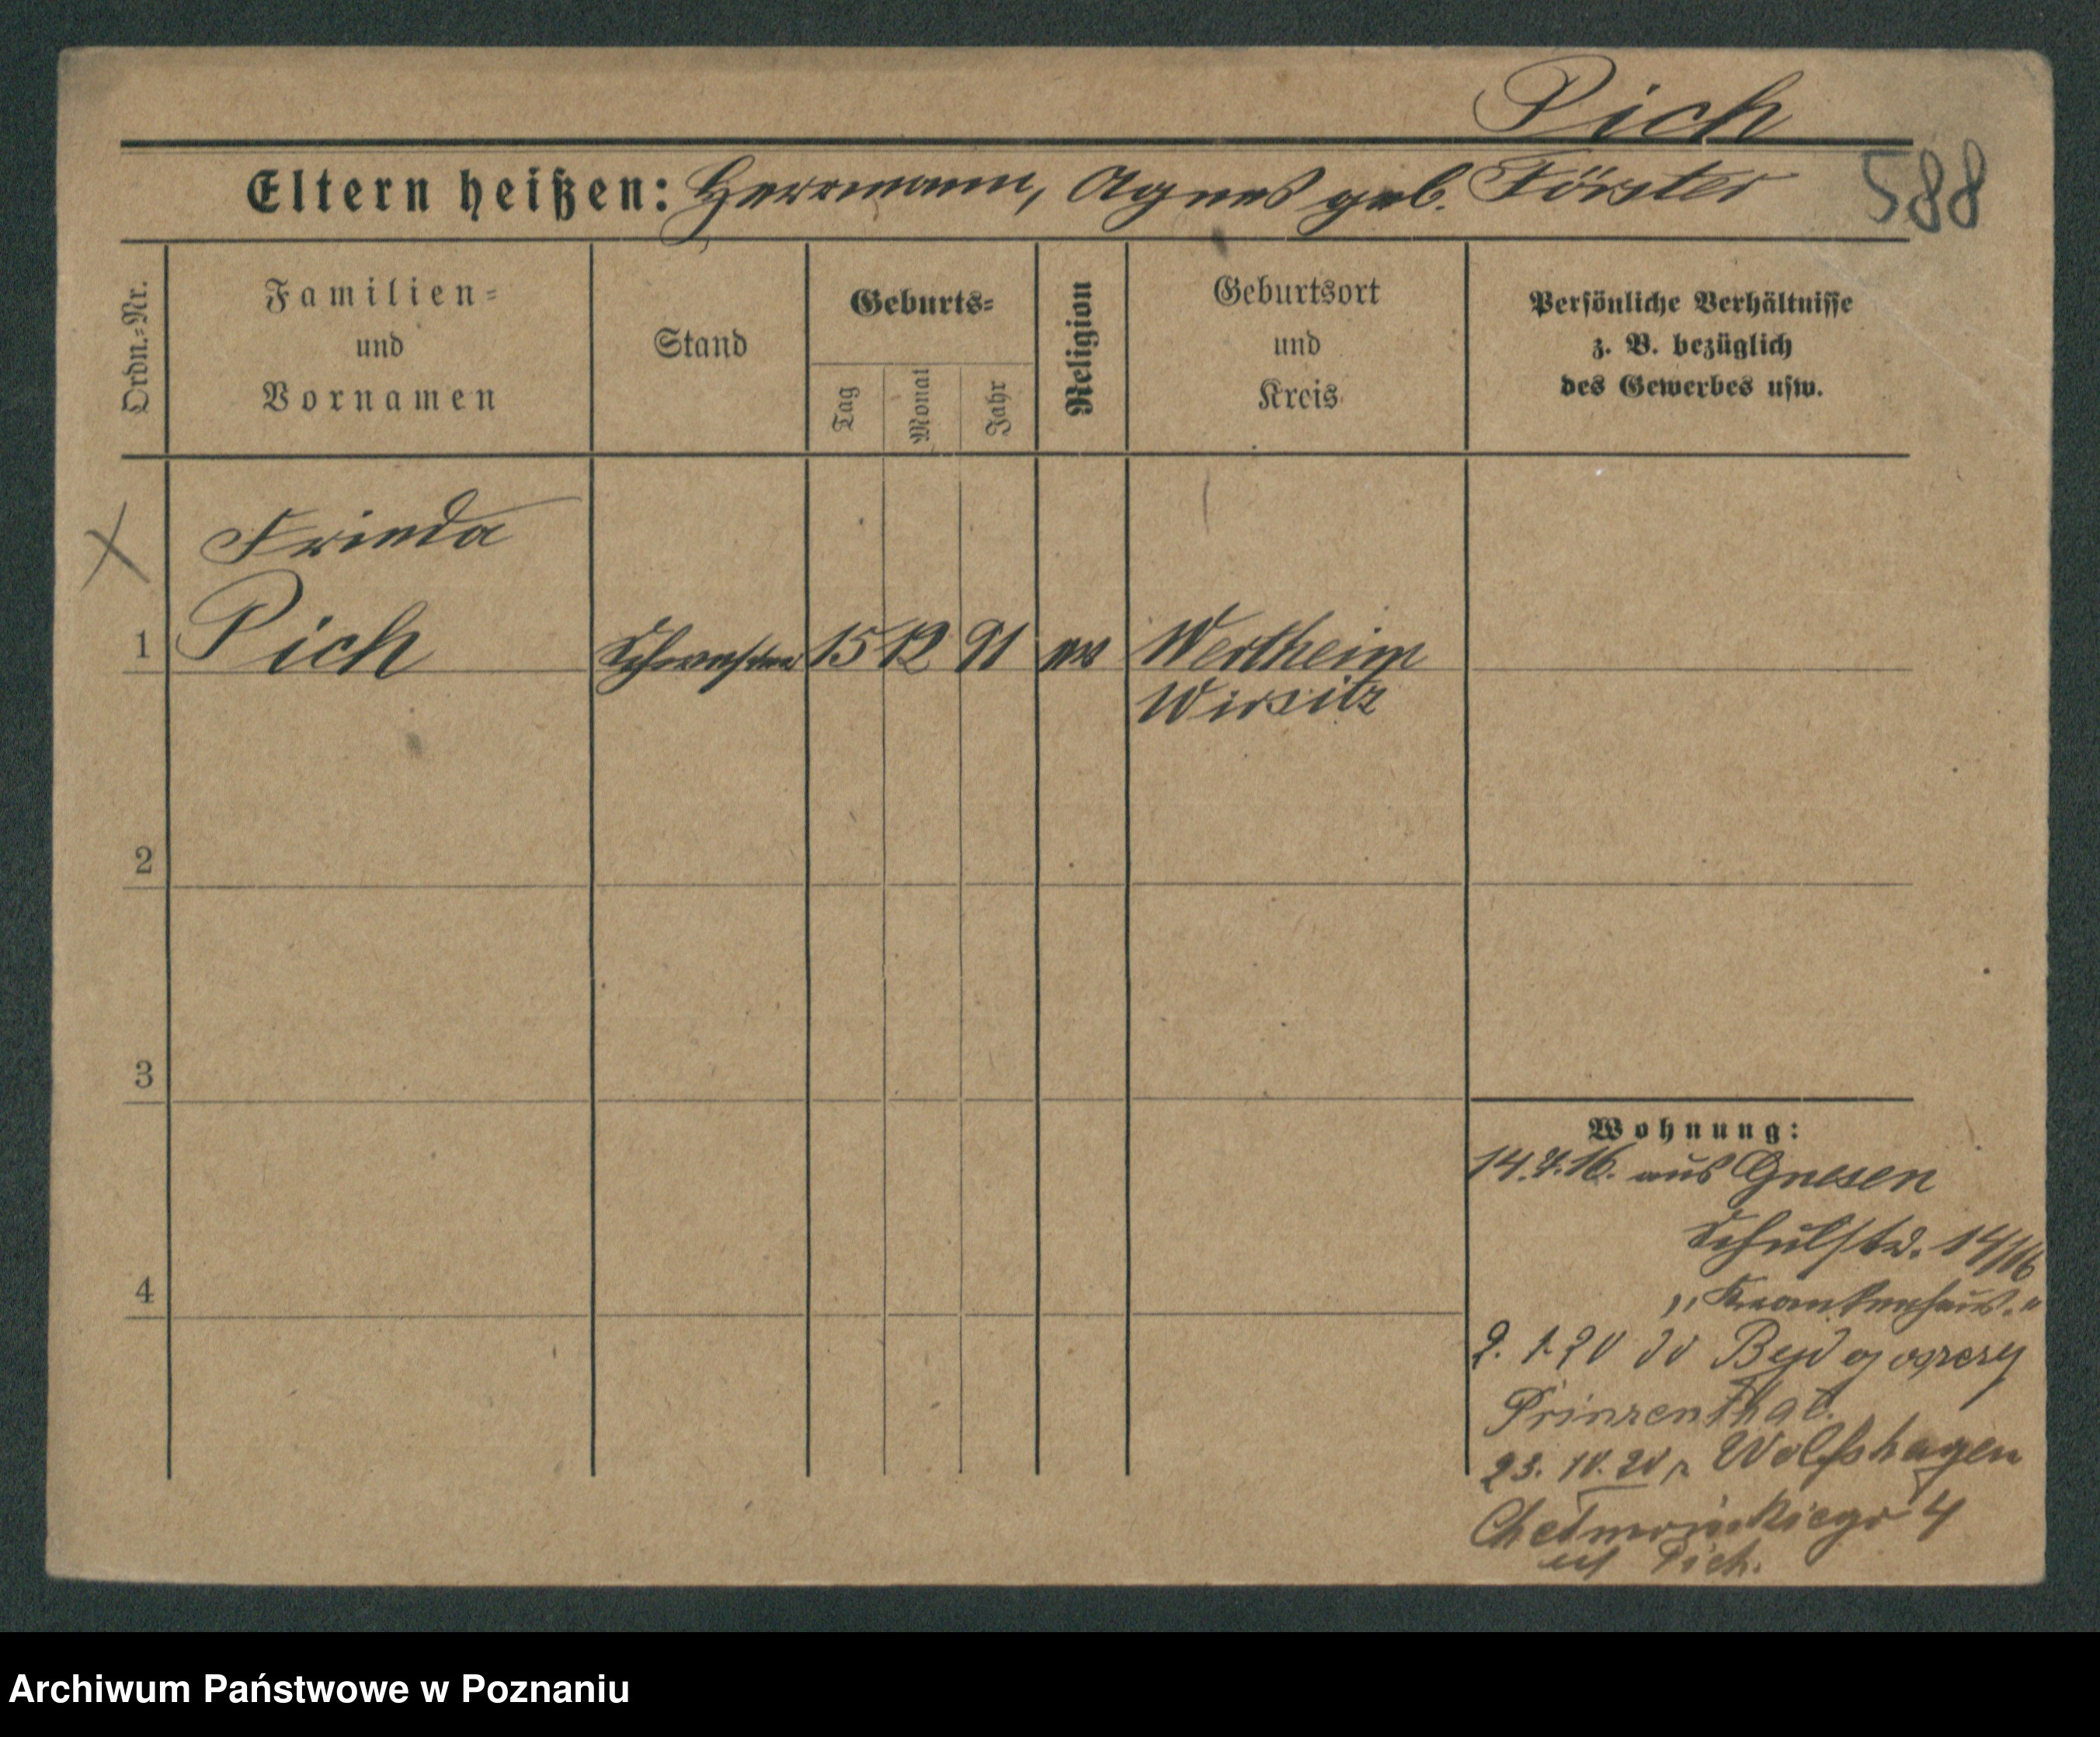 Pich
588
Eltern heißen: Herrmann, Agnes geb. Förster
Ordn.-Nr.
Familien-
und
Vornamen
Stand
Geburts-
Tag
Monat
Jahr
Religion
Geburtsort
und
Kreis
Persönliche Verhältnisse
z. B. bezüglich
des Gewerbes usw.
Frieda
1 Pich Schwester 15 12 91 Wertheim
Wirsitz
2
3
4
Wohnung:
14. 16. aus Gnesen
Schulstr. 14/16
„Krankenhaus."
2. 1. 20 do Bydgoszczy
Prinzenthal.
23. 10. 20 Wolfshagen
4
Pich.
Archiwum Państwowe w Poznaniu